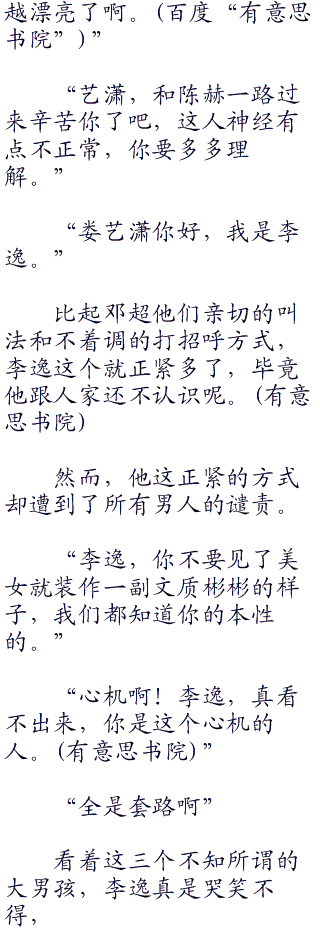 越漂亮了啊。(百度“有意思
书院”)”
“艺潇，和陈赫一路过
来辛苦你了吧，这人神经有
点不正常，你要多多理
解。”
“娄艺潇你好，我是李
逸。”
比起邓超他们亲切的叫
法和不着调的打招呼方式，
李逸这个就正紧多了，毕竟
他跟人家还不认识呢。(有意
思书院)
然而，他这正紧的方式
却遭到了所有男人的谴责。
“李逸，你不要见了美
女就装作一副文质彬彬的样
子，我们都知道你的本性
的。”
“心机啊！李逸，真看
不出来，你是这个心机的
人。(有意思书院)”
“全是套路啊”
看着这三个不知所谓的
大男孩，李逸真是哭笑不
得，